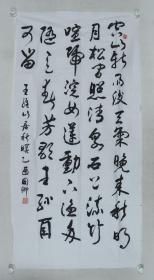 空山新雨後天氣晚来秋明
月松間照清泉石上流竹
喧歸浣女蓮動下漁舟
随意春芳歇王孫自
可留
王維山居秋暝乙酉國卿